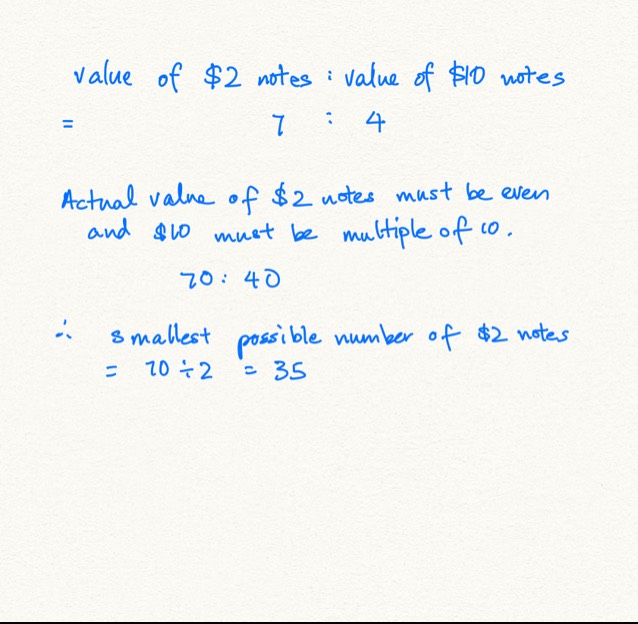 value of $2 notes : value of $10 notes
= 7 : 4
Actual value of $2 notes must be even
and $10 must be multiple of 10.
70 : 40
∴ smallest possible number of $2 notes
= 70 ÷ 2 = 35